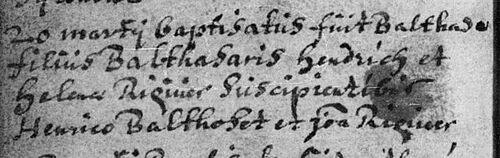 20 martij baptisatus fuit Balthade
filius Balthasaris Hendrich et
Helena Rigiuer Suscipientibus
Henrico Balthoset et joa Rigiuer